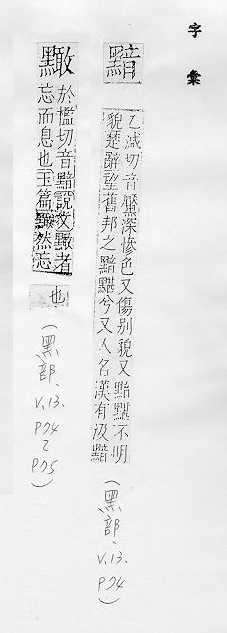 字彙
黯
乙減切音黶深慘色又傷別貌又黯黮不明
貌楚辭望舊邦之黯黮兮又人名漢有汲黯
(黑部、v.13.p74)
黬
於檻切音黯說文黬者
忘而息也玉篇黬然忘
也
(黑部、v.13.p74乙p75)